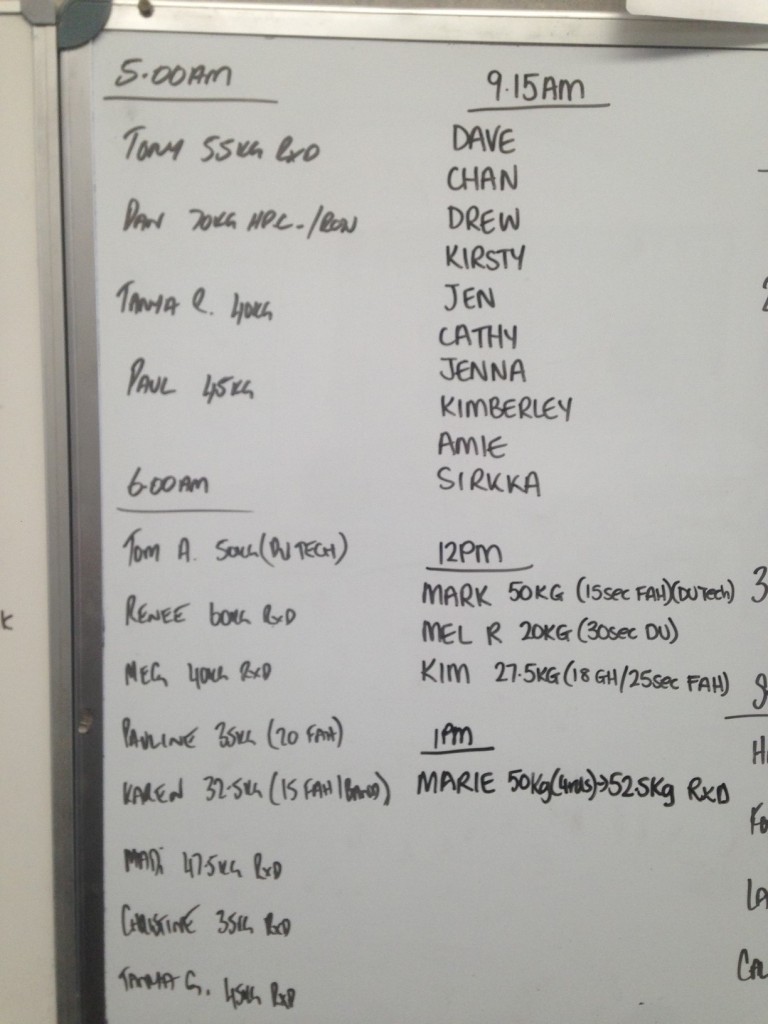 5.00AM
TONY 55KG RXD
DAN 70KG HPC-/ROW
TANYA R. 40KG
PAUL 45KG
6.00AM
TOM A. 50KG (DU TECH)
RENEE 60KG RXD
MEG 40KG RXD
PAULINE 35KG (20 FAH)
KAREN 32.5KG (15 FAH/BAND)
MADi 47.5KG RXD
CHRISTINE 35KG RXD
TANYA G. 45KG RXD
9.15AM
DAVE
CHAN
DREW
KIRSTY
JEN
CATHY
JENNA
KIMBERLEY
AMIE
SIRKKA
12PM
MARK 50KG (15sec FAH)(DUTech)
MEL R 20KG (30sec DU)
KIM 27.5KG (18 GH/25sec FAH)
1PM
MARIE 50Kg(4rnds)→52.5Kg RXD
3
Fo
LA
CAL
K